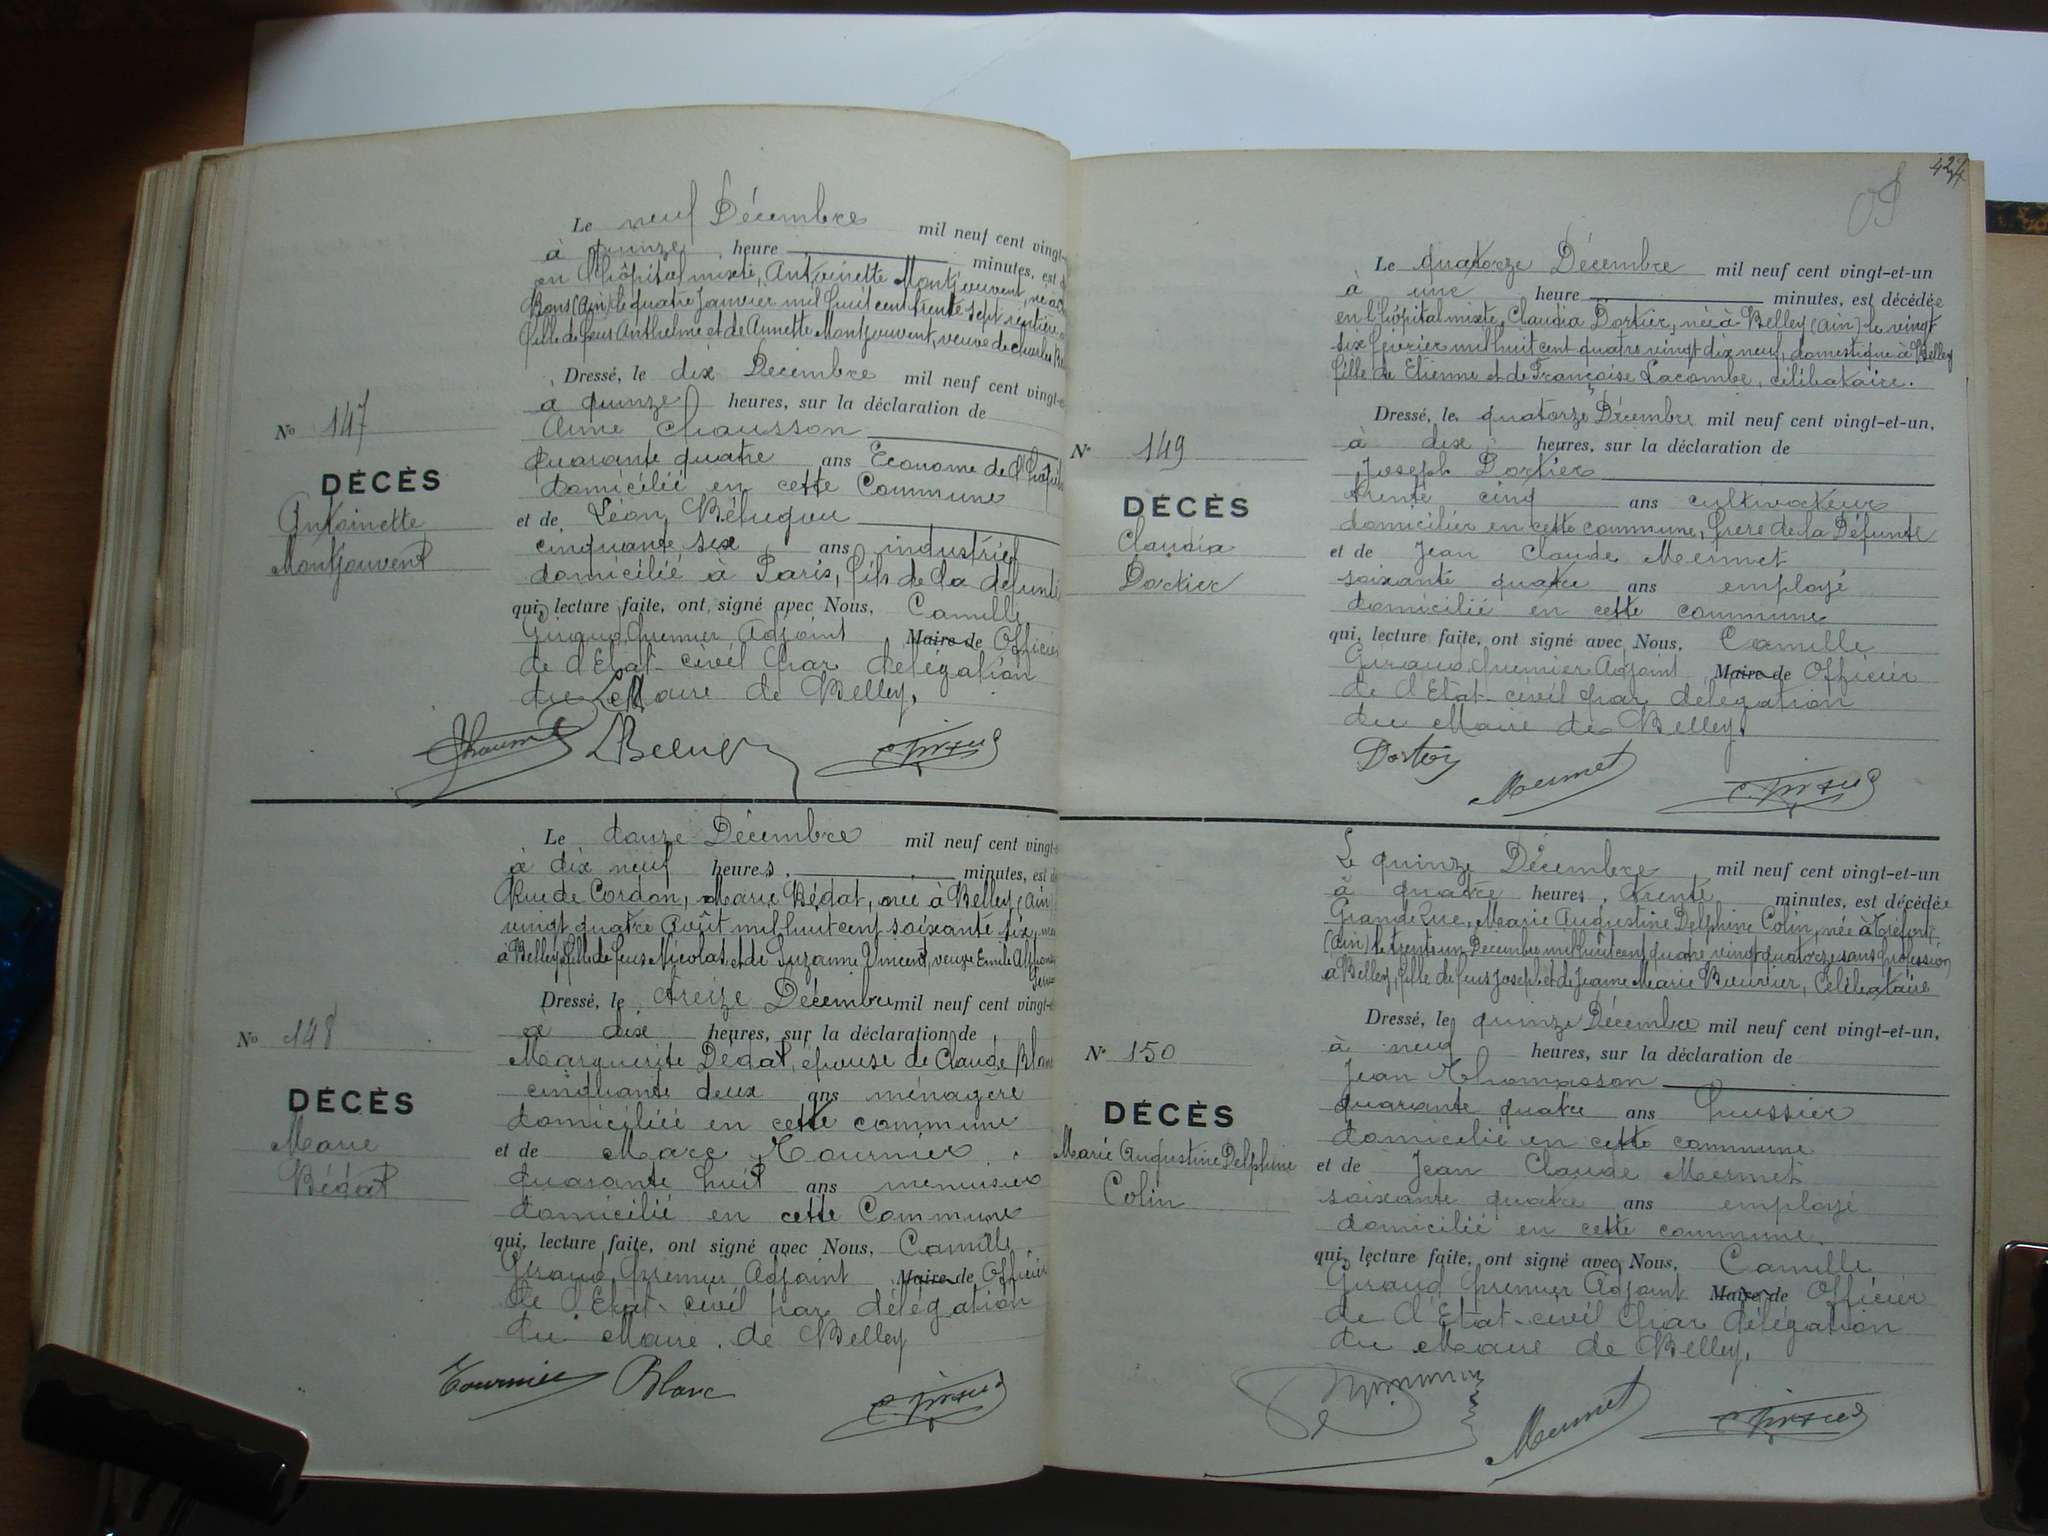 Le neuf Décembre mil neuf cent vingt-
à quinze heure minutes, est d
en l'hôpital mixte, Antoinette Montjouvent, née à
Bons (Ain) le quatre Janvier mil huit cent trente sept rentière
fille de feus Anthelme et de Annette Montjouvent, veuve de Charles
Dressé, le dix Decembre mil neuf cent vingt-
à quinze heures, sur la déclaration de
Nº 147
Aimé Chausson
quarante quatre ans Econome de l'hôpital
DÉCÈS
domicilié en cette Commune
Antoinette
et de Léon
Montjouvent
cinquante six ans industriel
domicilié à Paris, fils de la défunte
qui, lecture faite, ont signé avec Nous, Camille
Giraud Premier Adjoint Maire de Officier
de l'Etat-civil par délégation
du Maire de Belley,
Le douze Décembre mil neuf cent vingt-
à dix neuf heures, minutes, est dé
Rue de Cordon, Marie Bédat, née à Belley (Ain)
vingt quatre Août mil huit cent soixante six,
à Belley, fille de feus Nicolas et de Suzanne Vincent, veuve Emile Alphonse
Dressé, le treize Décembre mil neuf cent vingt-
à dix heures, sur la déclaration de
Nº 148
Marguerite Bedat, épouse de Claude Blanc
cinquante deux ans ménagère
DÉCÈS
domiciliée en cette commune
Marie
et de Marc Tournier
Bédat
quarante huit ans menuisier
domicilié en cette Commune
qui, lecture faite, ont signé avec Nous, Camille
Giraud, Premier Adjoint Maire de Officier
de l'Etat-civil par délégation
du Maire de Belley
Tournier Blanc C. Giraud
424
Le quatorze Décembre mil neuf cent vingt-et-un
à une heure minutes, est décédée
en l'hôpital mixte, Claudia Dortier, née à Belley (Ain) le vingt
six février mil huit cent quatre vingt dix neuf, domestique à Belley
fille de Etienne et de Françoise Lacombe, célibataire.
Dressé, le quatorze Décembre mil neuf cent vingt-et-un,
à dix heures, sur la déclaration de
Nº 149
Joseph Dortier
trente cinq ans cultivateur
DÉCÈS
domicilier en cette commune, frere de la Défunte
Claudia
et de Jean Claude Mermet
Dortier
soixante quatre ans employé
domicilié en cette commune
qui, lecture faite, ont signé avec Nous, Camille
Giraud Premier Adjoint Maire de Officier
de l'Etat-civil par délégation
du Maire de Belley.
Mermet C. Giraud
Le quinze Décembre mil neuf cent vingt-et-un
à quatre heures, trente minutes, est décédée
Grande Rue, Marie Augustine Delphine Colin, née à Tréfort,
(Ain) le trente un Decembre mil huit cent quatre vingt quatorze sans profession
à Belley, fille de feus Joseph et de Jeanne Marie Célibataire
Dressé, le quinze Décembre mil neuf cent vingt-et-un,
à neuf heures, sur la déclaration de
Nº 150
Jean Thomasson
quarante quatre ans huissier
DÉCÈS
domicilié en cette commune
Marie Augustine Delphine
et de Jean Claude Mermet
Colin
soixante quatre ans employé
domicilié en cette commune
qui, lecture faite, ont signé avec Nous, Camille
Giraud Premier Adjoint Maire de Officier
de l'Etat-civil par délégation
du Maire de Belley,
Mermet C. Giraud